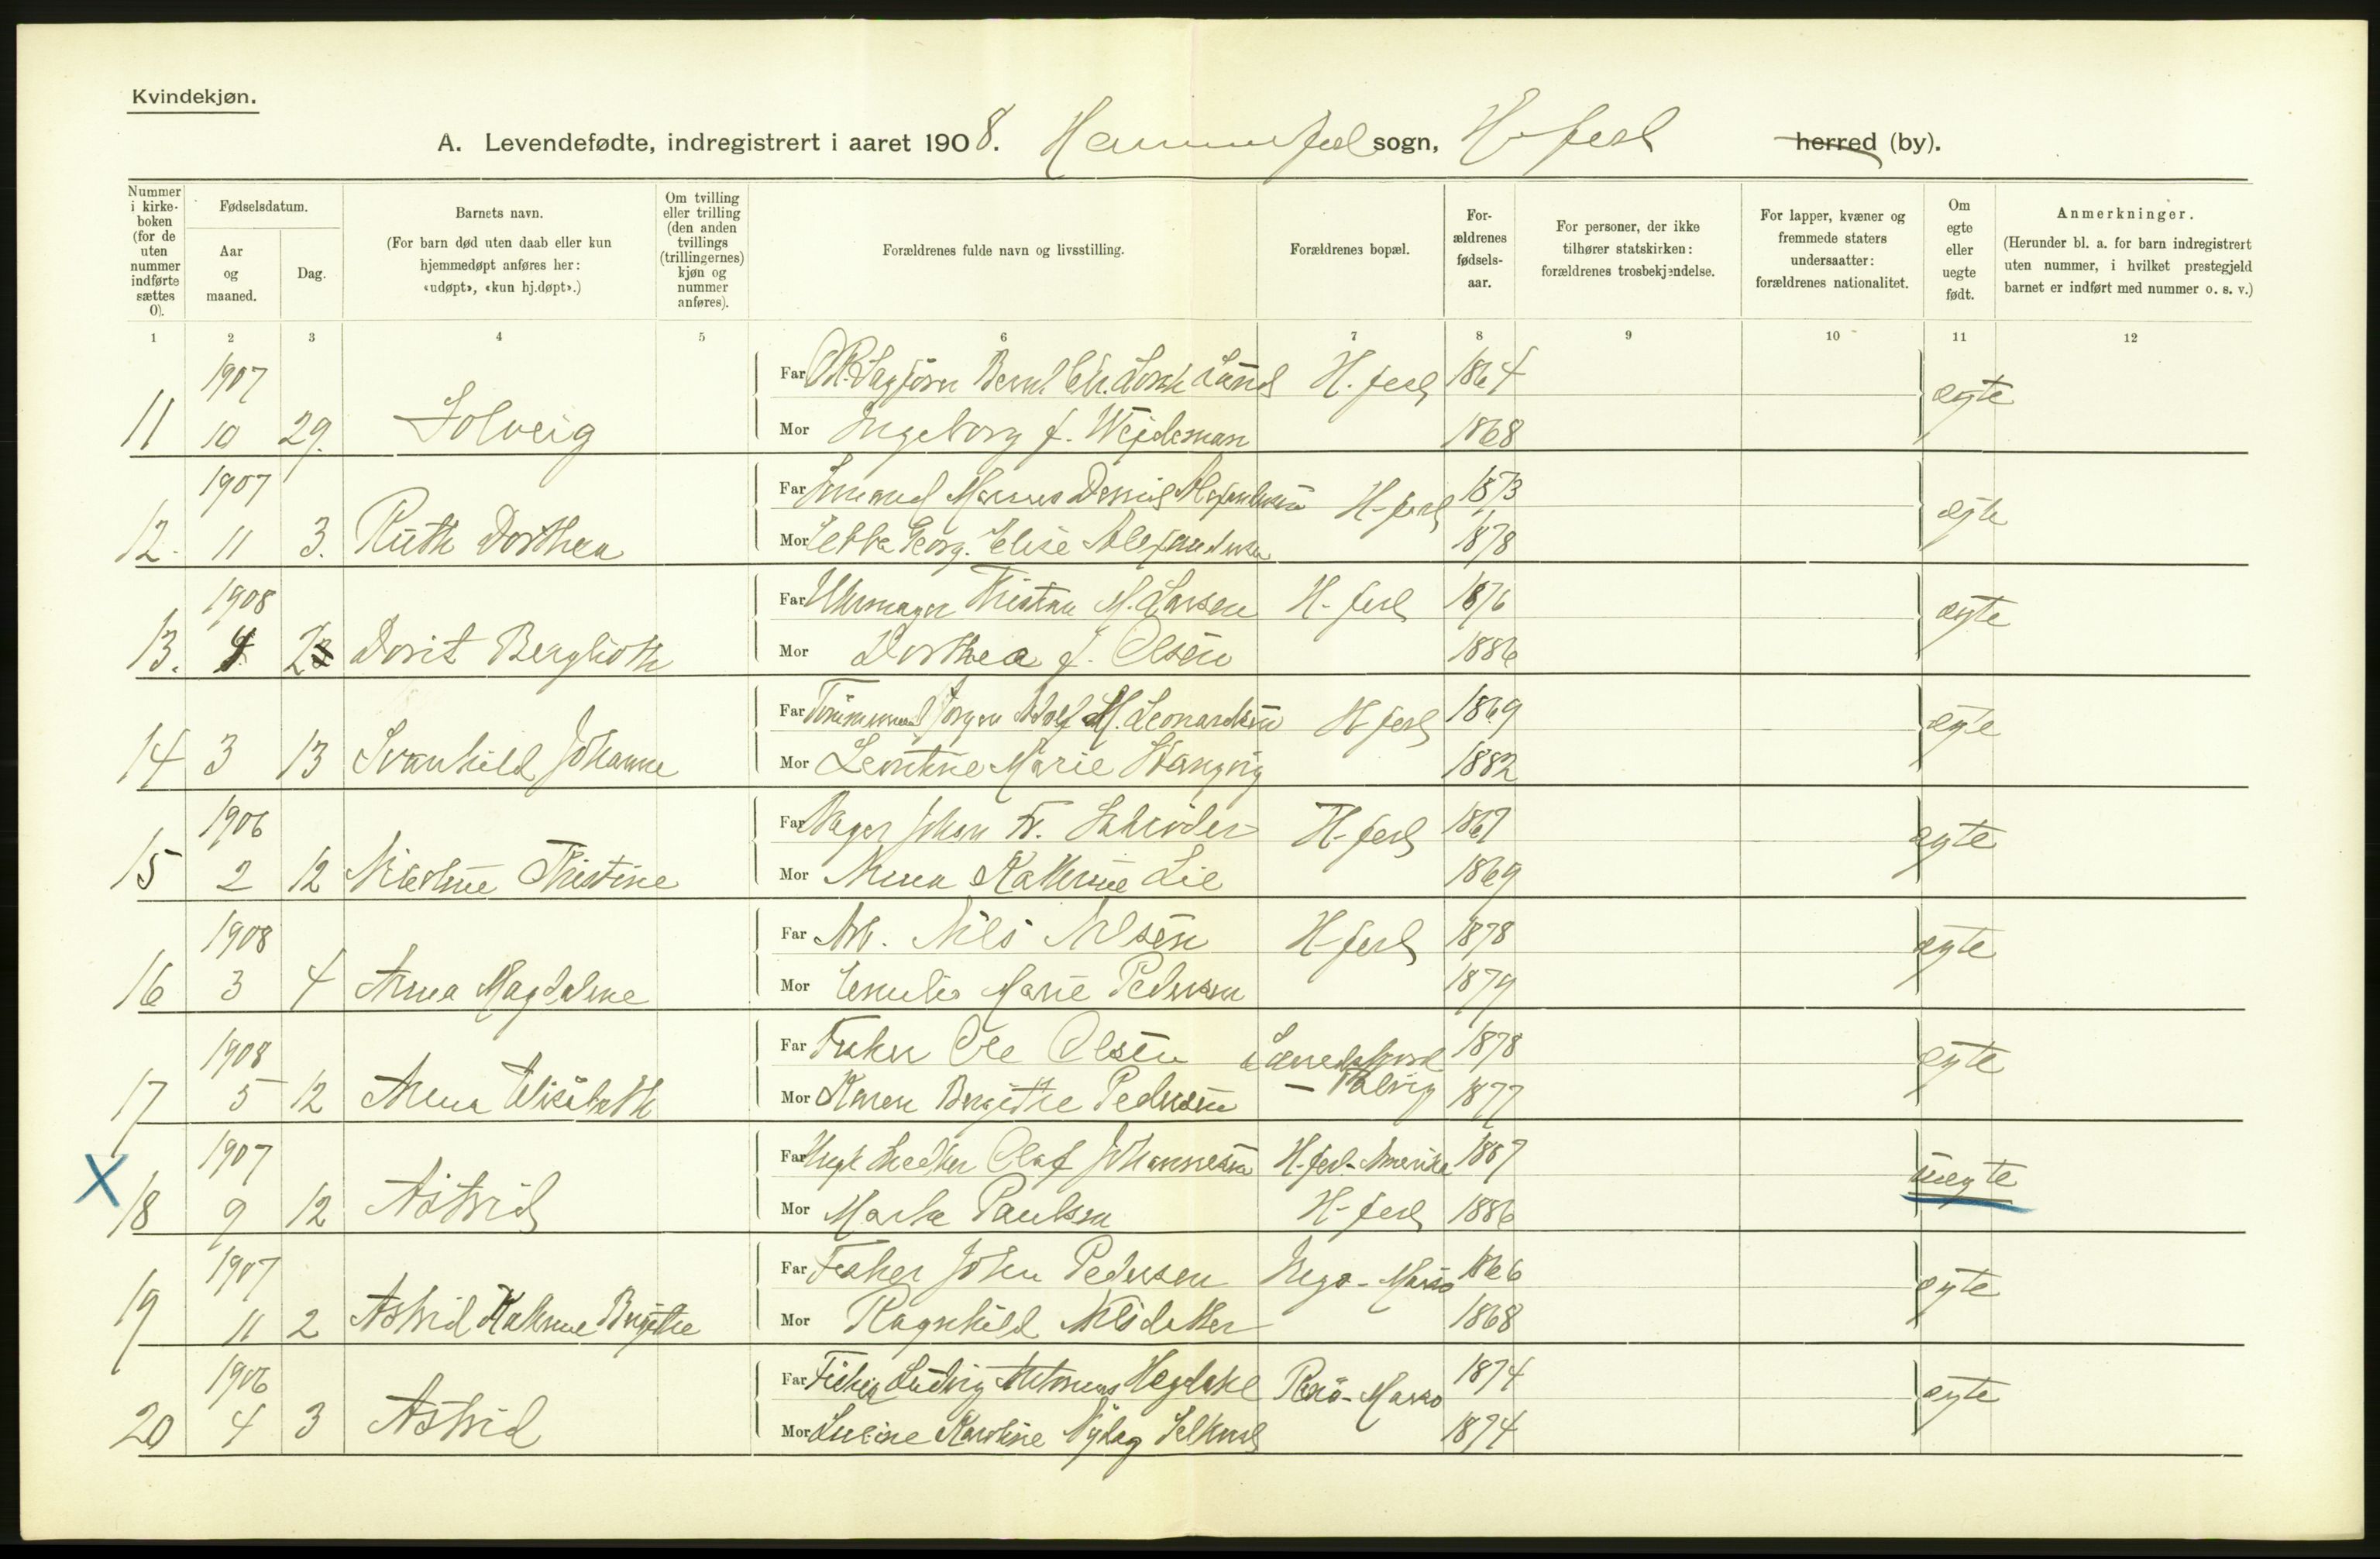 Kvindekjøn.
A. Levendefødte, indregistrert i aaret 1908. Hammerfest sogn, H-fest herred (by).
Nummer i kirkeboken (for de uten nummer indførte sættes 0).
Fødselsdatum.
Aar og maaned.
Dag.
Barnets navn.
(For barn død uten daab eller kun hjemmedøpt anføres her: «udøpt», «kun hj.døpt».)
Om tvilling eller trilling (den anden tvillings (trillingernes) kjøn og nummer anføres).
Forældrenes fulde navn og livsstilling.
Forældrenes bopæl.
Forældrenes fødselsaar.
For personer, der ikke tilhører statskirken: forældrenes trosbekjendelse.
For lapper, kvæner og fremmede staters undersaatter: forældrenes nationalitet.
Om egte eller uegte født.
Anmerkninger.
(Herunder bl. a. for barn indregistrert uten nummer, i hvilket prestegjeld barnet er indført med nummer o. s. v.)
1 2 3 4 5 6 7 8 9 10 11 12
1907 Far Lund H-fest 1864 ægte
11 10 29. Solveig Mor Ingeborg f. Wejdeman 1868
1907 Far Marius 1873 H-fest ægte
12. 11 3. Ruth Dorthea Mor Georg. Elise Alexandersen 1878
1908 Far Uhrmager Kristian M. Larsen H-fest 1876 ægte
13. Dorit Berglioth Mor Dorthea f. Olsen 1886
Far Tømmermand Jørgen Adolf M. Leonardsen H-fest 1869 ægte
14 3 13 Svanhild Johanne Mor Leontine Marie 1882
1906 Far Bager Johan Fr. Schrøder H-fest 1867 ægte
15 2 12 Kristine Mor Anna Katherine Lie 1869
1908 Far Arb. Nils Nilsen H-fest 1878 ægte
16 3 4 Anna Magdalene Mor Emilie Marie Pedersen 1879
1908 Far Fisker Ole Olsen 1878 ægte
17 5 12 Anna Elisabeth Mor Karen Bergithe Pedersen 1877
1907 Far Ungk. Snedker Olaf Johannesen H-fest-Amerika 1887 uegte
X 18 9 12 Astrid Mor Marta Paulsen H-fest 1886
1907 Far Fisker John Pedersen - Masø 1866 ægte
19 11 2 Astrid Kathrine Bergithe Mor Ragnhild 1868
1906 Far Fisker Ludvig 1874 - Masø ægte
20 4 3 Astrid Mor Karoline 1874